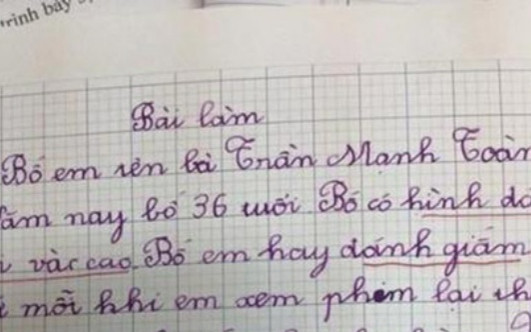 trình bày
Bài làm
Bố em nên là Trần Mạnh Toàn
năm nay bố 36 tuổi Bố có hình do
vàc cao Bố em hay dánh giăm
mỗi khi em xem phim lại